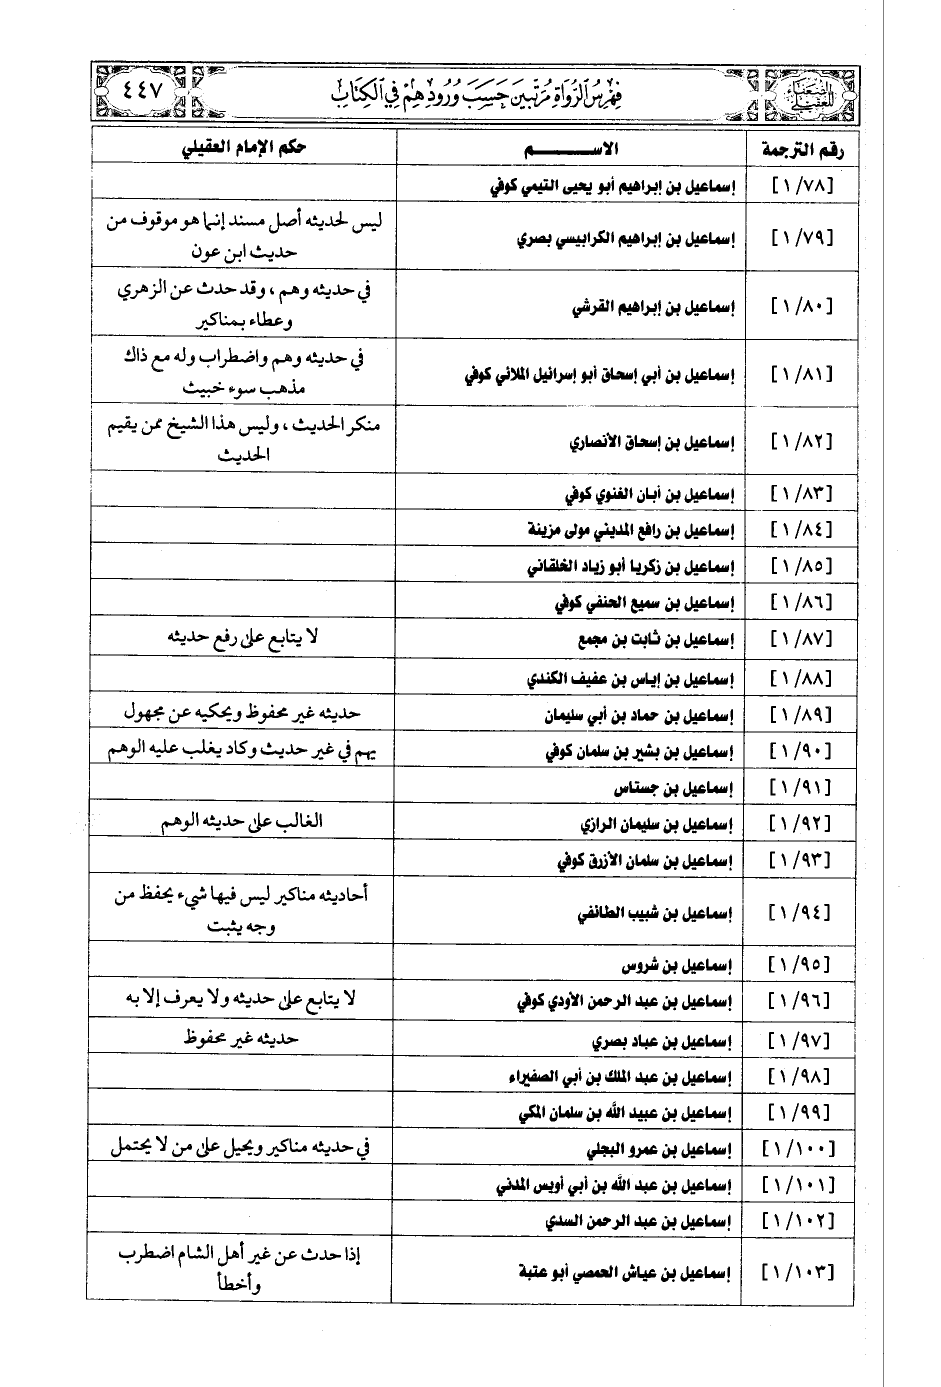 الضعفاء للعقيلي فهرس الرواة مرتبين حسب ورودهم في الكتاب ٤٤٧
رقم الترجمة الاســـــم حكم الإمام العقيلي
[١/٧٨] إسماعيل بن إبراهيم أبو يحيى التيمي كوفي
[١/٧٩] إسماعيل بن إبراهيم الكرابيسي بصري ليس لحديثه أصل مسند إنما هو موقوف من
حديث ابن عون
[١/٨٠] إسماعيل بن إبراهيم القرشي في حديثه وهم ، وقد حدث عن الزهري
وعطاء بمناكير
[١/٨١] إسماعيل بن أبي إسحاق أبو إسرائيل الملائي كوفي في حديثه وهم واضطراب وله مع ذاك
مذهب سوء خبيث
[١/٨٢] إسماعيل بن إسحاق الأنصاري منكر الحديث ، وليس هذا الشيخ ممن يقيم
الحديث
[١/٨٣] إسماعيل بن أبان الغنوي كوفي
[١/٨٤] إسماعيل بن رافع المديني مولى مزينة
[١/٨٥] إسماعيل بن زكريا أبو زياد الخلقاني
[١/٨٦] إسماعيل بن سميع الحنفي كوفي
[١/٨٧] إسماعيل بن ثابت بن مجمع لا يتابع على رفع حديثه
[١/٨٨] إسماعيل بن إياس بن عفيف الكندي
[١/٨٩] إسماعيل بن حماد بن أبي سليمان حديثه غير محفوظ ويحكيه عن مجهول
[١/٩٠] إسماعيل بن بشير بن سلمان كوفي يهم في غير حديث وكاد يغلب عليه الوهم
[١/٩١] إسماعيل بن جستاس
[١/٩٢] إسماعيل بن سليمان الرازي الغالب على حديثه الوهم
[١/٩٣] إسماعيل بن سلمان الأزرق كوفي
[١/٩٤] إسماعيل بن شبيب الطائفي أحاديثه مناكير ليس فيها شيء يحفظ من
وجه يثبت
[١/٩٥] إسماعيل بن شروس
[١/٩٦] إسماعيل بن عبد الرحمن الأودي كوفي لا يتابع على حديثه ولا يعرف إلا به
[١/٩٧] إسماعيل بن عباد بصري حديثه غير محفوظ
[١/٩٨] إسماعيل بن عبد الملك بن أبي الصفيراء
[١/٩٩] إسماعيل بن عبيد الله بن سلمان المكي
[١/١٠٠] إسماعيل بن عمرو البجلي في حديثه مناكير ويحيل على من لا يحتمل
[١/١٠١] إسماعيل بن عبد الله بن أبي أويس المدني
[١/١٠٢] إسماعيل بن عبد الرحمن السدي
[١/١٠٣] إسماعيل بن عياش الحمصي أبو عتبة إذا حدث عن غير أهل الشام اضطرب
وأخطأ